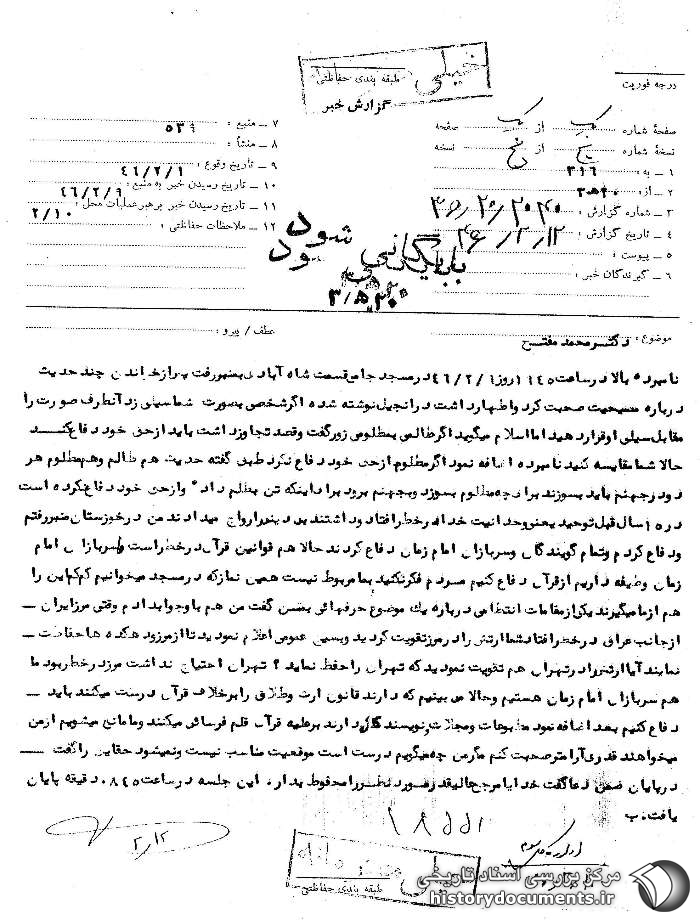 خیلی
طبقه بندی حفاظتی
گزارش خبر
درجه فوریت
صفحهٔ شماره یک از یک صفحه
نسخهٔ شماره از نسخه
۱ ــ به : ۳۱۶
۲ ــ از :
۳ ــ شماره گزارش :
۴ ــ تاریخ گزارش : ۴۶/۲/۱۲
۵ ــ پیوست :
۶ ــ گیرندگان خبر :
۷ ــ منبع : ۵۳۹
۸ ــ منشأ :
۹ ــ تاریخ وقوع : ۴۶/۲/۱
۱۰ ــ تاریخ رسیدن خبر به منبع : ۴۶/۲/۹
۱۱ ــ تاریخ رسیدن خبر برهبر عملیات محل : ۲/۱۰
۱۲ ــ ملاحظات حفاظتی :
بایگانی شود
موضوع : دکتر محمد مفتح
عطف / پیرو :
نامبرده بالا در ساعت روز ۴۶/۲/۱ در مسجد جامع قسمت شاه آبادی بمنبر رفت پس از خواندن چند حدیث
درباره مسیحیت صحبت کرد و اظهار داشت در انجیل نوشته شده اگر شخصی بصورت شما سیلی زد آنطرف صورت را
مقابل سیلی او قرار دهید اما اسلام میگوید اگر ظالمی بمظلومی زور گفت و قصد تجاوز داشت باید از حق خود دفاع کند
حالا شما مقایسه کنید نامبرده اضافه نمود اگر مظلوم از حق خود دفاع نکرد طبق گفته حدیث هم ظالم و هم مظلوم هر
دو در جهنم باید بسوزند برای چه مظلوم بسوزد و بجهنم برود برای اینکه تن بظلم داده و از حق خود دفاع نکرده است
در ۱۵ سال قبل توحید یعنی وحدانیت خدا بخطر افتاد و داشتند بر دینی را رواج میدادند من در خوزستان منبر رفتم
و دفاع کردم و تمام گویندگان و سربازان امام زمان دفاع کردند حالا هم قوانین قرآن در خطر است و سربازان امام
زمان وظیفه داریم از قرآن دفاع کنیم مردم فکر نکنید بما مربوط نیست همین نماز که در مسجد میخوانیم کم کم این را
هم از ما میگیرند یکی از مقامات انتظامی درباره یک موضوع حرفهائی بمن گفت من هم باو جواب دادم وقتی مرز ایران ــ
از جانب عراق در خطر افتاد شما ارتش را در مرز تقویت کردید و بسیج عمومی اعلام نمودید تا از مرز و دهکده ها حفاظت ــ
نمایند آیا ارتش را در تهران هم تقویت نمودید که تهران را حفظ نماید ؟ تهران احتیاج نداشت مرز در خطر بود ما
هم سربازان امام زمان هستیم و حالا می بینیم که دارند قانون ارث و طلاق را برخلاف قرآن درست میکنند باید ــ
دفاع کنیم بعد اضافه نمود مطبوعات و مجلات و نویسندگان دارند بر علیه قرآن قلم فرسائی میکنند و ما مانع میشویم از من
میخواهند قدری آرامتر صحبت کنم مگر من چه میگویم درست است موقعیت مناسب نیست و نمیشود حقایق را گفت ــ
در پایان ضمن دعا گفت خدایا مرجع عالیقدر مورد نظر را محفوظ بدار ، این جلسه در ساعت دقیقه پایان
یافت . ب
۲/۱۲
اداره کل سوم
خیلی محرمانه
طبقه بندی حفاظتی
مرکز بررسی اسناد تاریخی
historydocuments.ir